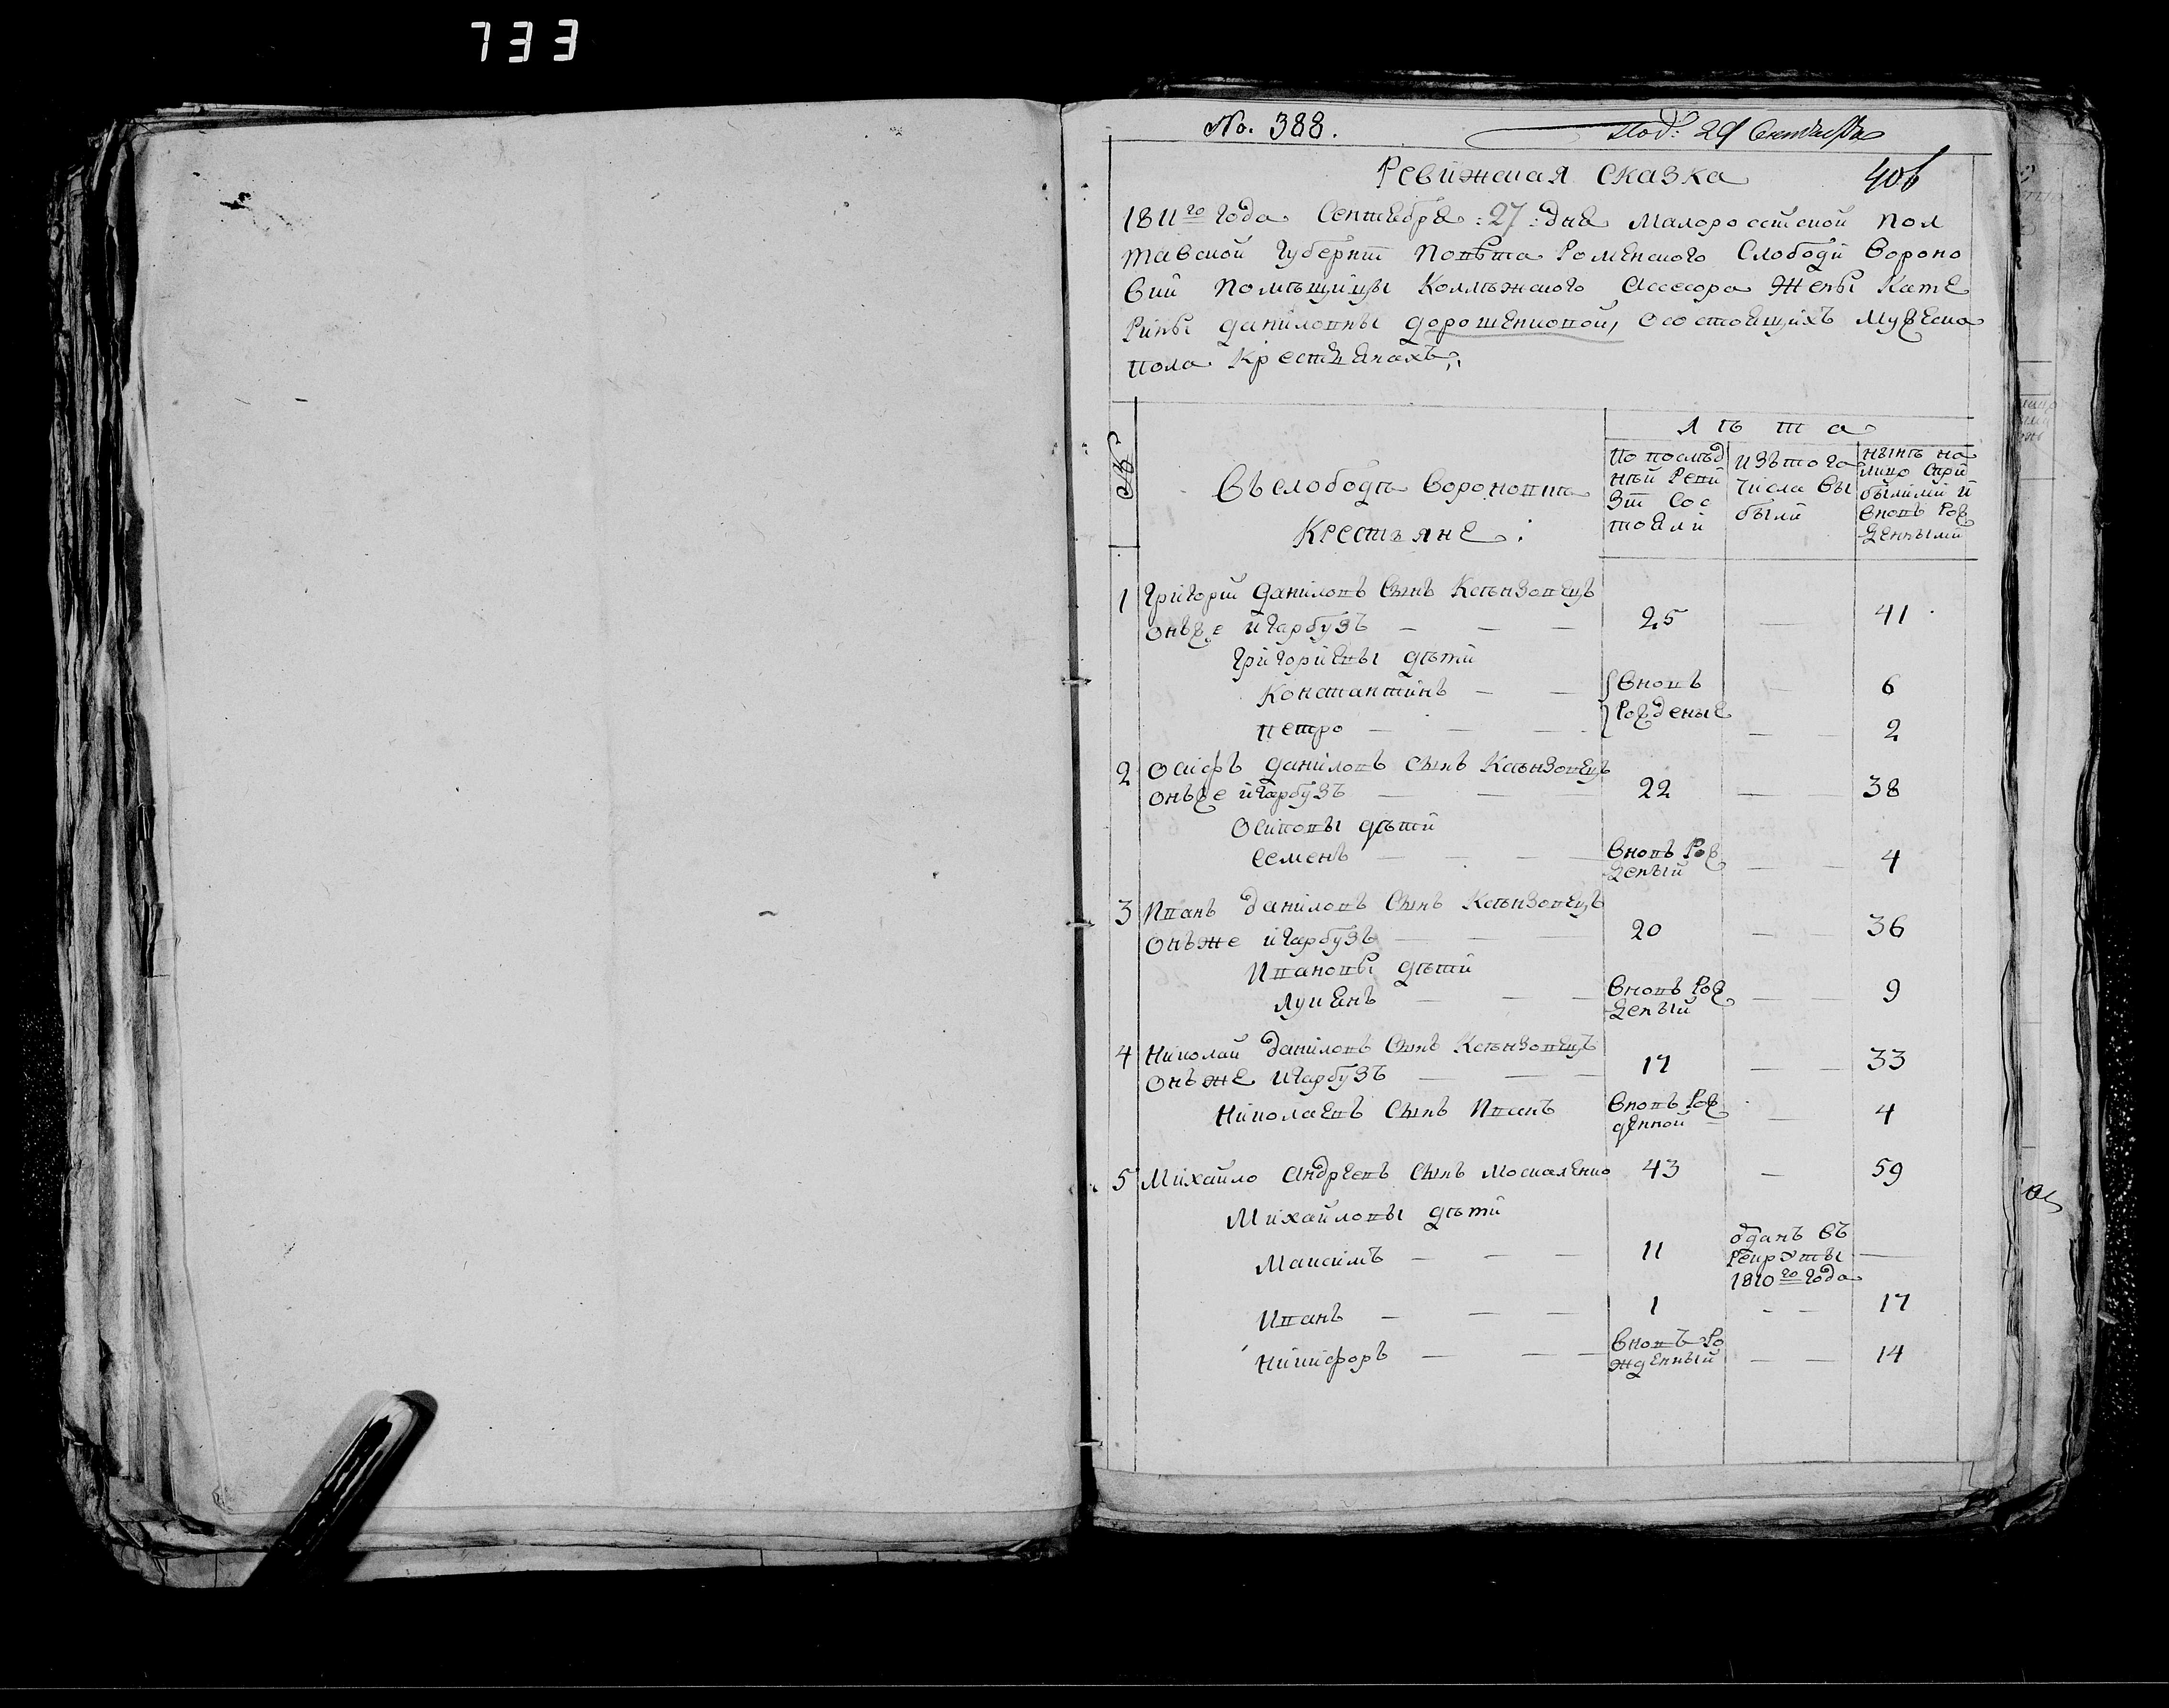 733
No. 388.
Под: 29 Сентября
Ревижская сказка
406
1811го года Сентебре :27: дне Малоросстской Пол
тавской Губернти Повѣта Роменского Слободи Вороно
вки Помѣщици Коллѣжского Ассесора Жены Кате
рины Даниловны Дорошенковой, О состоещихъ Мужеска
пола Крестьенахъ;
№
Въ слободѣ Вороновкѣ
Крестъяне:
Лѣта
По послѣд
ней Реви
зти Сос
тоели
Изъ того
числа вы
были
Нынѣ на
лицо сприбылими и
вновь рож
денными
1 Григорий Даниловъ Сынъ Ксѣнзовецъ
Онъже и Гарбузъ — — — 25 — 41
Григориевы дѣти
Константинъ — — Вновь — 6
Петро — — — рожденые — — 2
2 Осифъ Даниловъ сынъ Ксѣнзовецъ
Онъже и Гарбузъ — — 22 — — 38
Осиповы дѣти
Семенъ — — — Вновь Рож
деный — — 4
3 Иванъ Даниловъ Сынъ Ксѣнзовецъ
Онъже и Гарбузъ — — — 20 — — 36
Ивановы дѣти
Лукенъ — — — Вновь Рож
деный — — 9
4 Николай Даниловъ Сынъ Ксѣнзовецъ
Онъже и Гарбузъ — — — 17 — — 33
Николаевъ Сынъ Иванъ Вновь Рож
денной — 4
5 Михайло Андреевъ Сынъ Москаленко 43 — 59
Михайловы дѣти
Максимъ — — — 11 оданъ въ
рекруты
1810го года —
Иванъ — — — 1 — — 17
Никифоръ — — — Вновь Ро
жденный — — 14